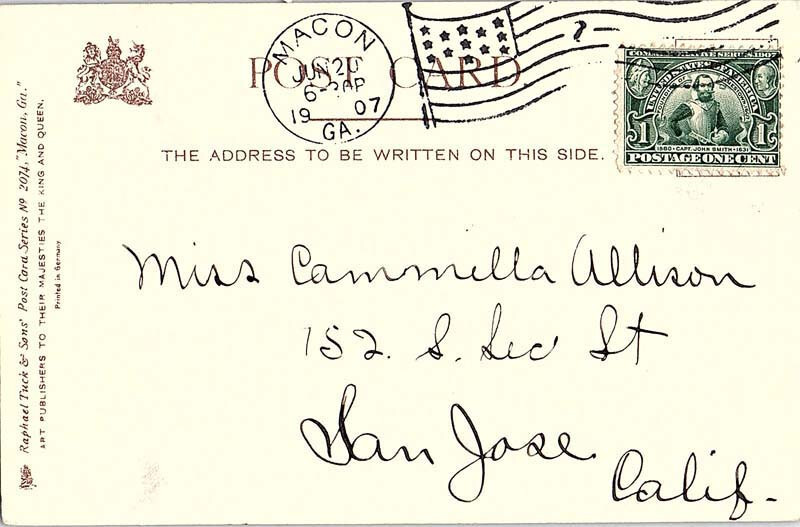 MACON
JUN 20
6-30P
1907
GA.
POST CARD
THE ADDRESS TO BE WRITTEN ON THIS SIDE.
COMMEMORATIVE SERIES 1907
UNITED STATES OF AMERICA
1 1
1580 • CAPT. JOHN SMITH • 1631
POSTAGE ONE CENT
Raphael Tuck & Sons' Post Card Series No 2074, "Macon, Ga."
ART PUBLISHERS TO THEIR MAJESTIES THE KING AND QUEEN.
Printed in Germany
Miss Cammella Allison
152. S. Sec St
San Jose
Calif-